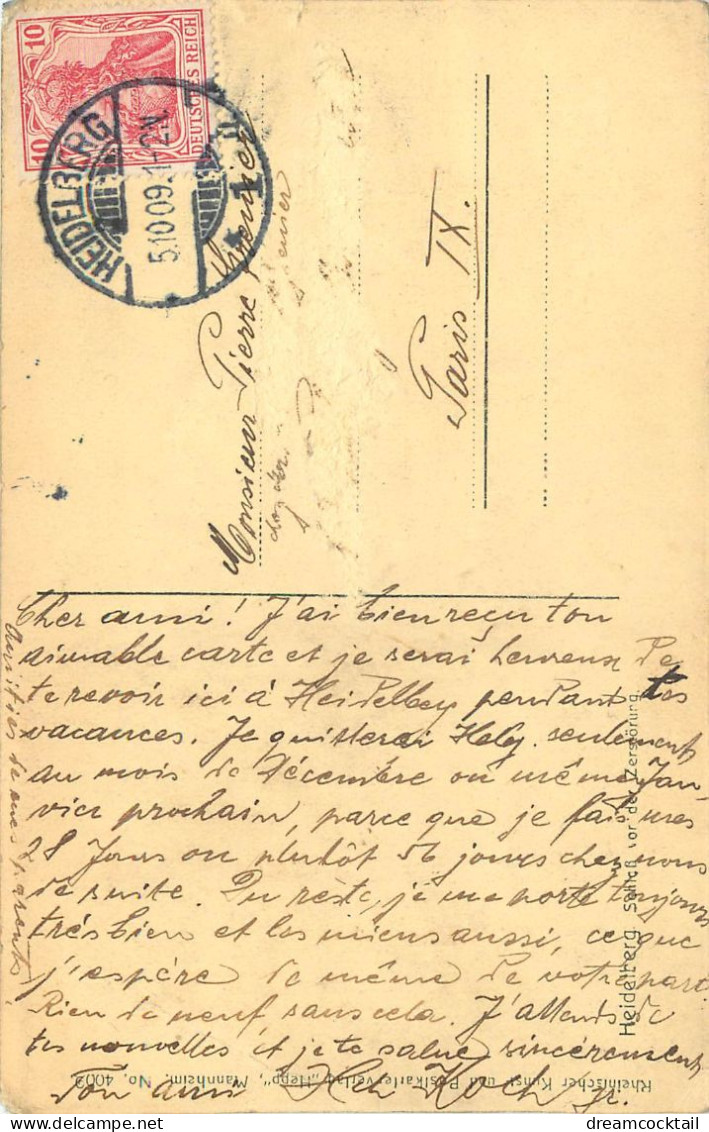 10 10
DEUTSCHES REICH
HEIDELBERG
5.10.09.1-2N.
* 1
Monsieur Pierre
Paris IX.
Cher ami! J'ai bien reçu ton
aimable carte et je serai heureux de
te revoir ici à Heidelberg pendant tes
vacances. Je quitterai Hdbg. seulement
au mois de Décembre ou même Jan-
vier prochain, parce que je fais mes
28 Jours ou plutôt 56 jours chez nous
de suite. Du reste, je me porte toujours
très bien et les miens aussi, ce que
j'espère de même de votre part.
Rien de neuf sans cela. J'attends de
tes nouvelles et je te salue sincèrement
Ton ami Koch jr.
Amitiés de mes parents
Heidelberg. Schloß vor der Zerstörung.
Rheinischer Kunst- und Postkartenverlag „Hepp", Mannheim, No. 4009
dreamcocktail